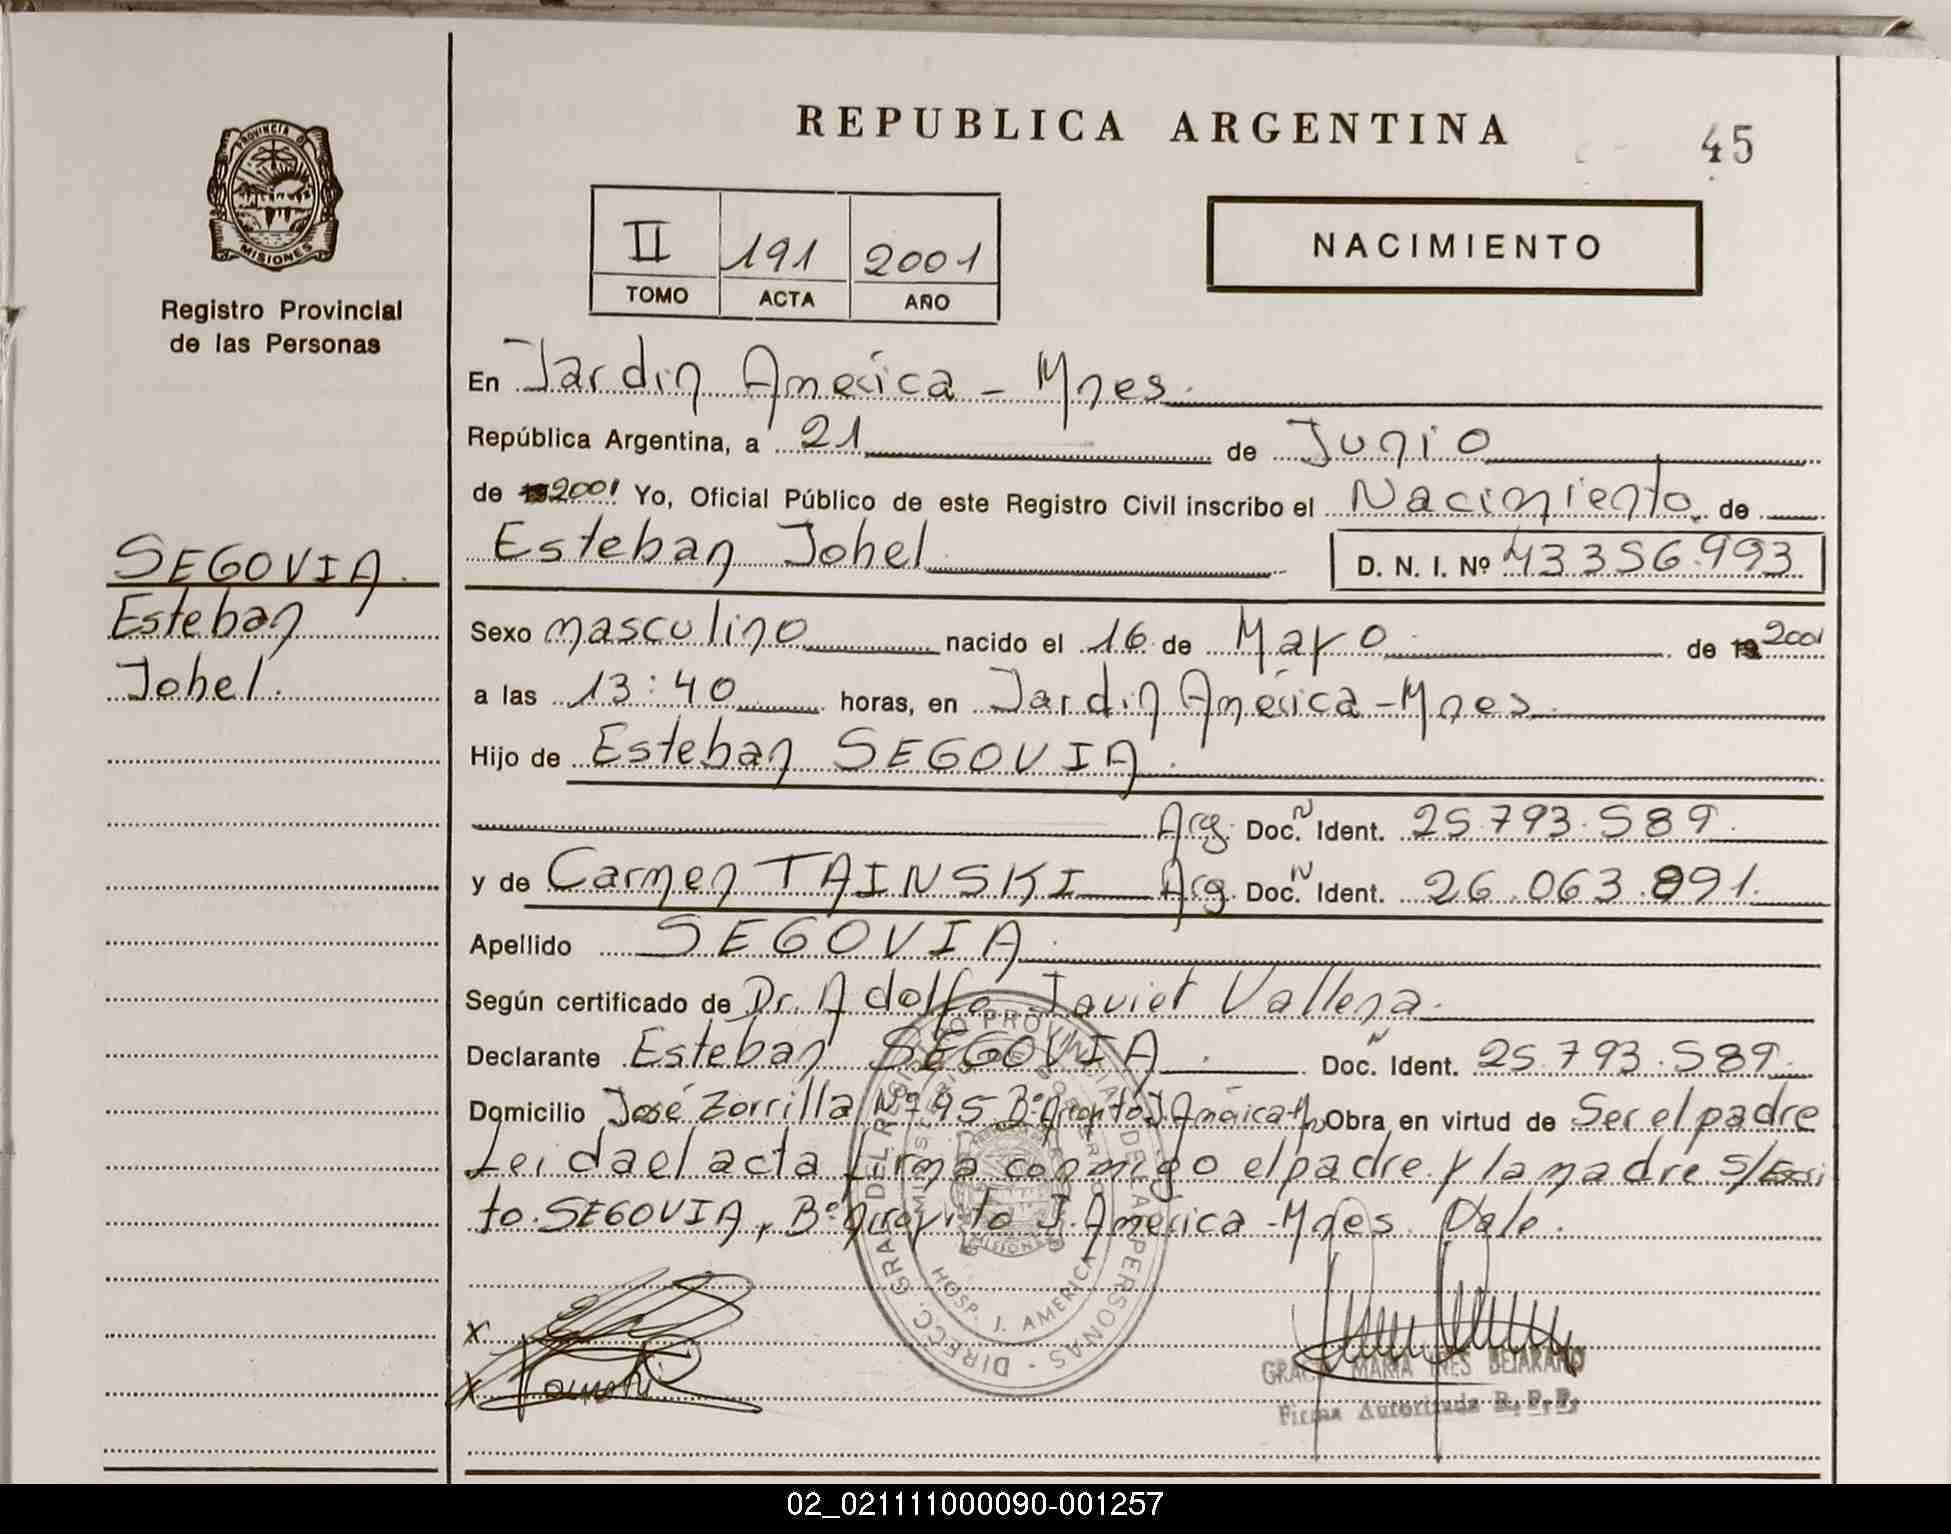 REPUBLICA ARGENTINA
45
PROVINCIA D
MISIONES
Registro Provincial
de las Personas
II 191 2001
TOMO ACTA AÑO
NACIMIENTO
En Jardin America - Mnes.
República Argentina, a 21 de Junio
de 2001 Yo, Oficial Público de este Registro Civil inscribo el Nacimiento de
Esteban Johel D. N. I. Nº 43356.993
SEGOVIA.
Esteban
Johel.
Sexo masculino nacido el 16 de Mayo de 2001
a las 13:40 horas, en Jardin América - Mnes.
Hijo de Esteban SEGOVIA.
Arg. Doc. N Ident. 25.793.589.
y de Carmen TAINSKI Arg. Doc. N Ident. 26.063.891.
Apellido SEGOVIA.
Según certificado de Dr. Adolfo Javier Vallena.
Declarante Esteban SEGOVIA. Doc. N Ident. 25.793.589.
Domicilio José Zorrilla Nº 95 Bº J. América Obra en virtud de Ser el padre
Leida el acta firma conmigo el padre y la madre s/Escri
to. SEGOVIA, Bº Arroyito J. America - Mnes. Vale.
DIRECC. GRAL. DEL REGISTRO PROVINCIAL DE LAS PERSONAS
MINISTERIO DE GOBIERNO
MISIONES
HOSP. J. AMERICA
x
x
MARIA INES BEJARANO
Firma Autorizada R. P. P.
02_021111000090-001257